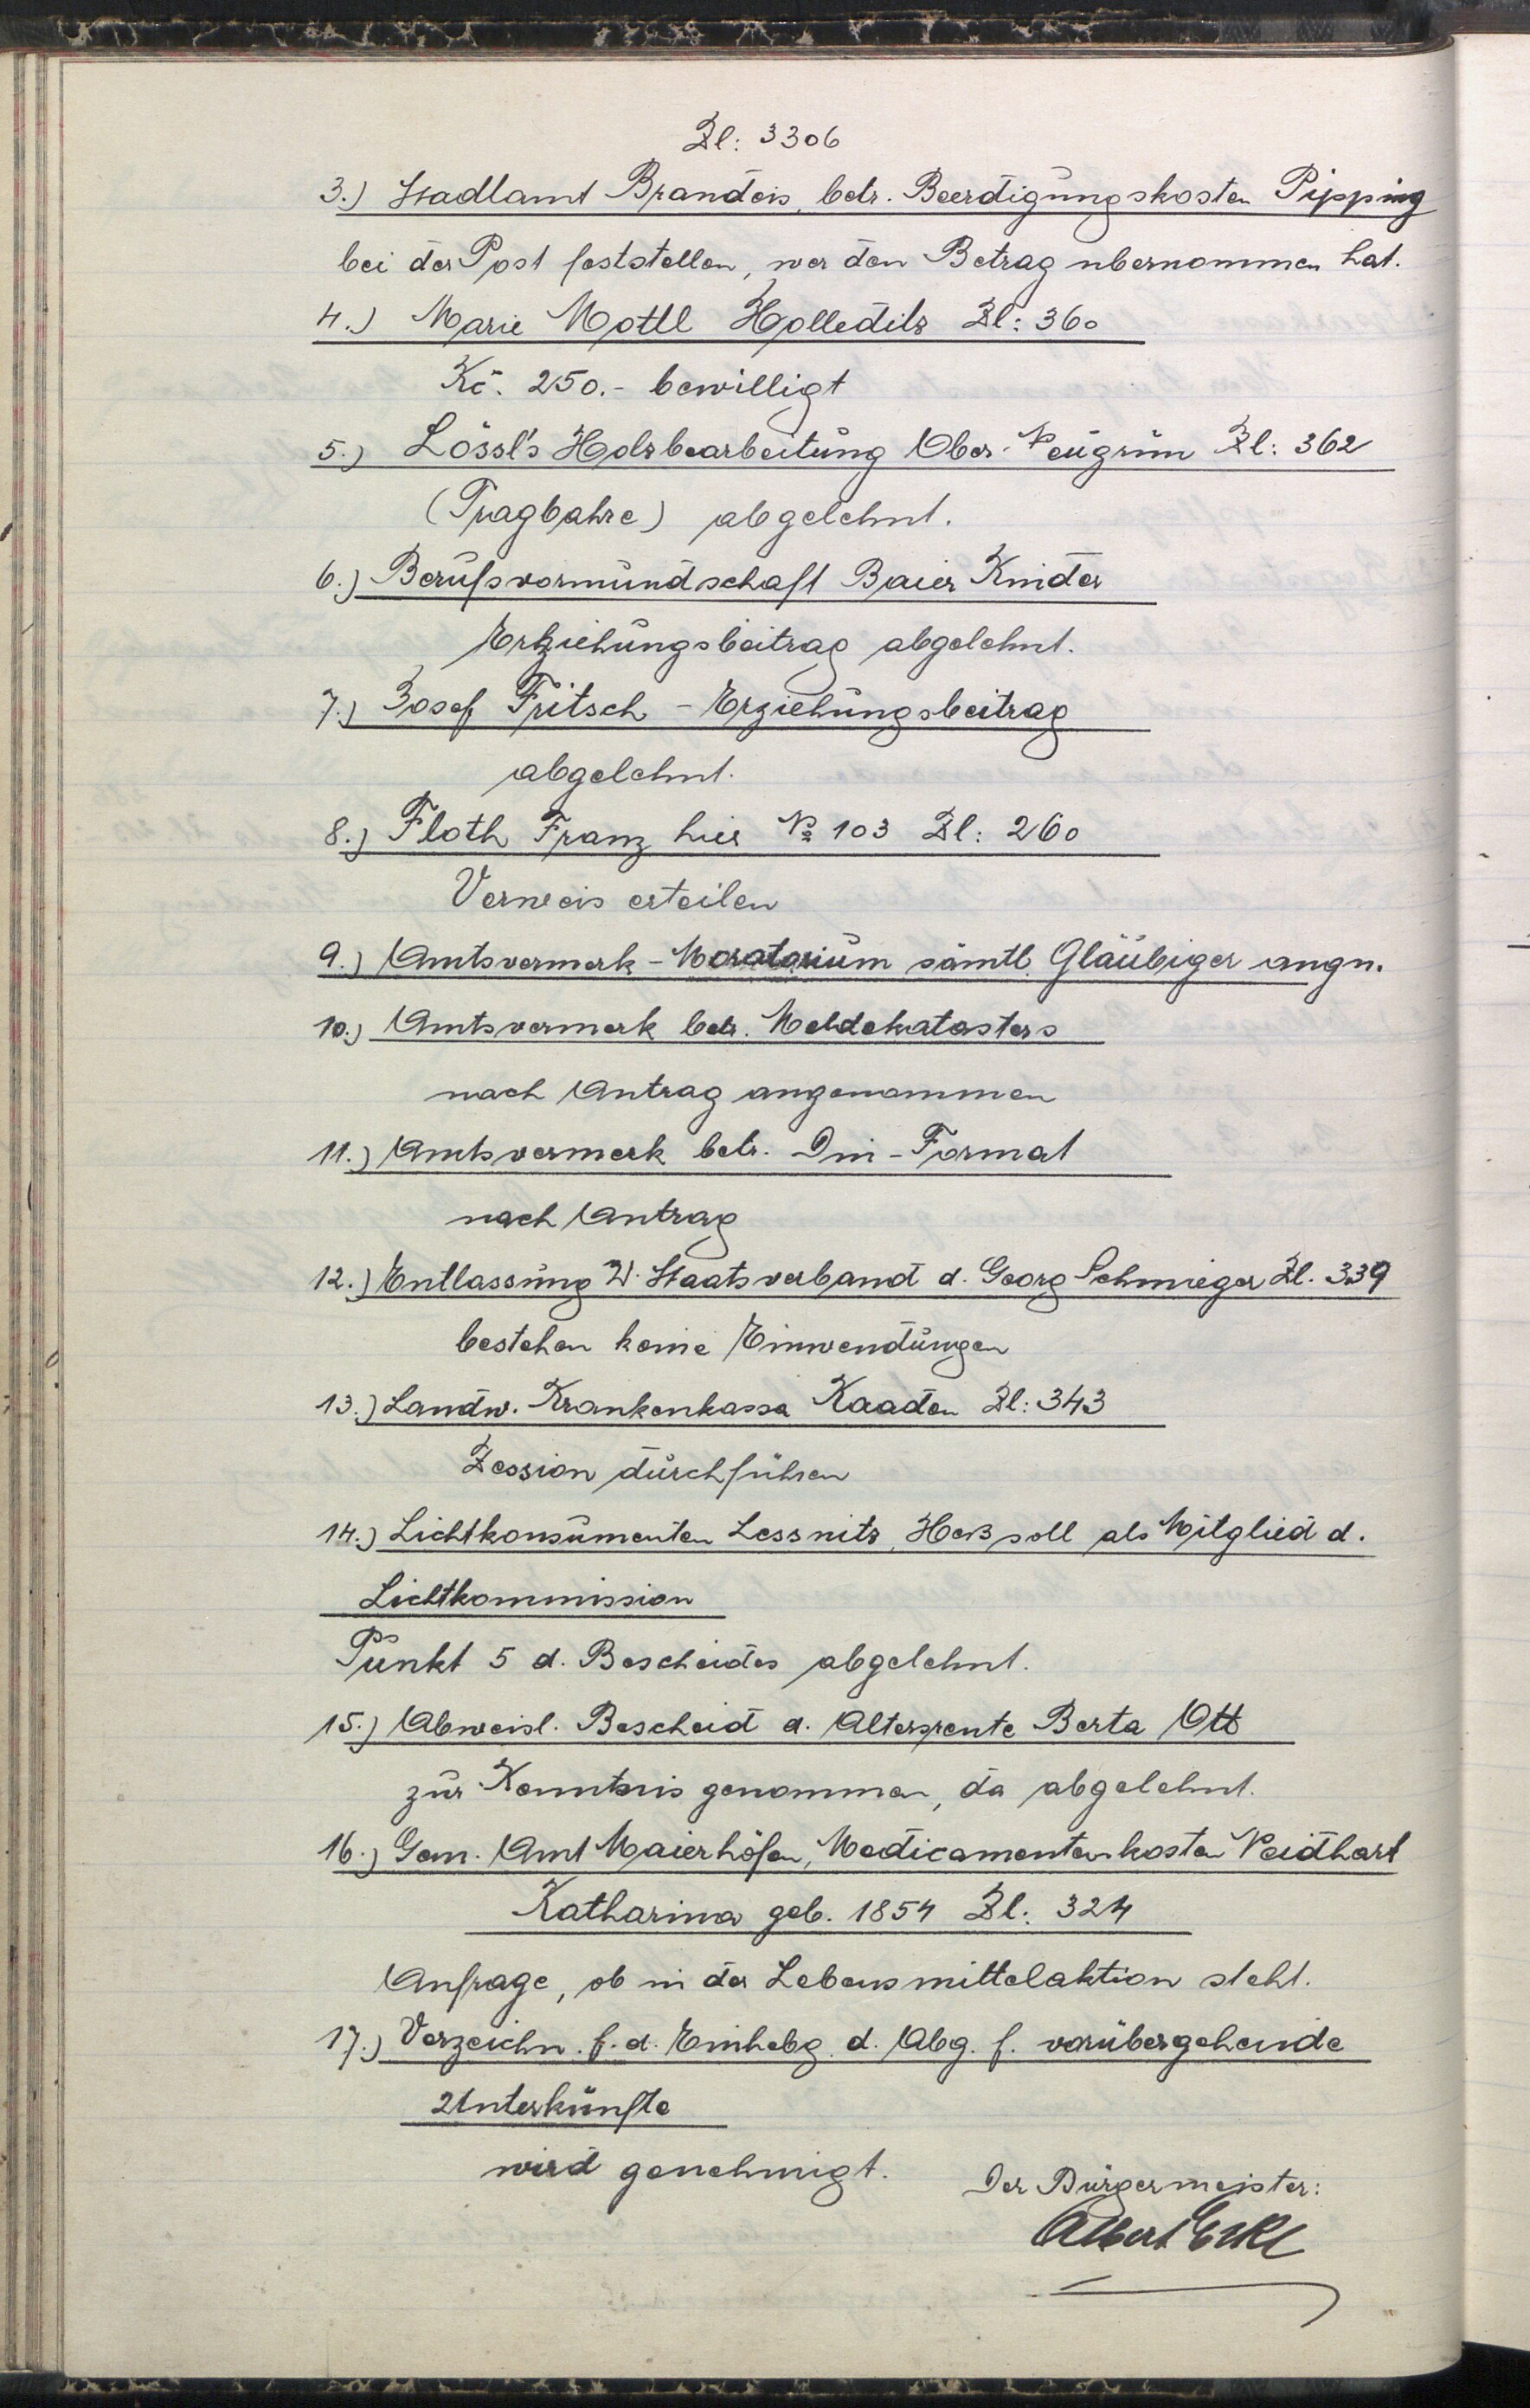 Zl: 3306
3.) Stadtamt Brandeis, betr. Beerdigungskosten Pipping
bei der Post feststellen, wer den Betrag übernommen hat.
4.) Marie Mottl Holleditz Zl: 360
Kč. 250.- bewilligt
5.) Lössl's Holzbearbeitung Ober-Neugrün Zl: 362
(Tragbahre) abgelehnt.
6.) Berufsvormundschaft Baier Kinder
Erziehungsbeitrag abgelehnt.
7.) Josef Fritsch - Erziehungsbeitrag
abgelehnt.
8.) Floth Franz hier № 103 Zl: 260
Verweis erteilen
9.) Amtsvermerk - Moratorium sämtl. Gläubiger angn.
10.) Amtsvermerk betr. Meldekatasters
nach Antrag angenommen
11.) Amtsvermerk betr. Din-Format
nach Antrag
12.) Entlassung Staatsverband d. Georg Schmieger Zl. 339
bestehen keine Einwendungen
13.) Landw. Krankenkassa Kaaden Zl: 343
Zession durchführen
14.) Lichtkonsumenten Lessnitz, Heß soll als Mitglied d.
Lichtkommission
Punkt 5 d. Bescheides abgelehnt.
15.) Abweisl. Bescheid d. Altersrente Berta Ott
zur Kenntnis genommen, da abgelehnt.
16.) Gem. Amt Maierhöfen, Medicamentenkosten Neidhart
Katharina geb. 1854 Zl: 324
Anfrage, ob in der Lebensmittelaktion steht.
17.) Verzeichn. f. d. Einhebg. d. Abg. f. vorübergehende
Unterkünfte
wird genehmigt.
Der Bürgermeister:
Albert